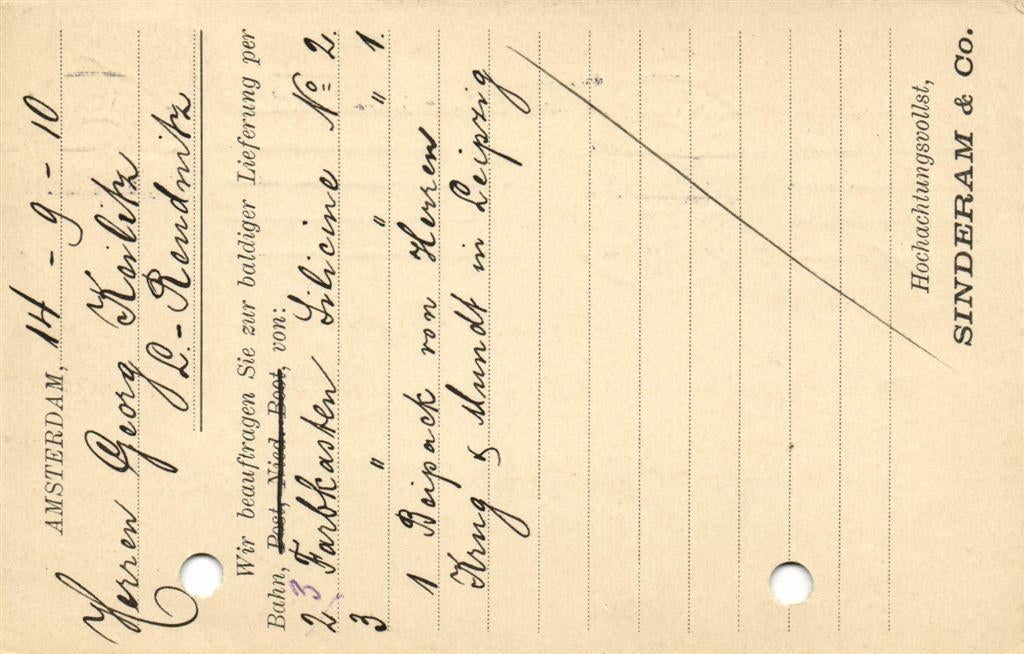 AMSTERDAM, 14 - 9 - 10
Herren Georg Keilitz
L.-Reudnitz
Wir beauftragen Sie zur baldiger Lieferung per
Bahn, Post, Nied. Boot, von:
3
2 Farbkasten Silicine No 2.
3 " " " 1.
1 Beipack von Herren
Krug & Mundt in Leipzig
Hochachtungsvollst,
SINDERAM & Co.